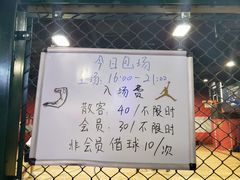 今日包场
主场 16:00-21:00
入场费
散客: 40/不限时
会员: 30/不限时
非会员借球10/次